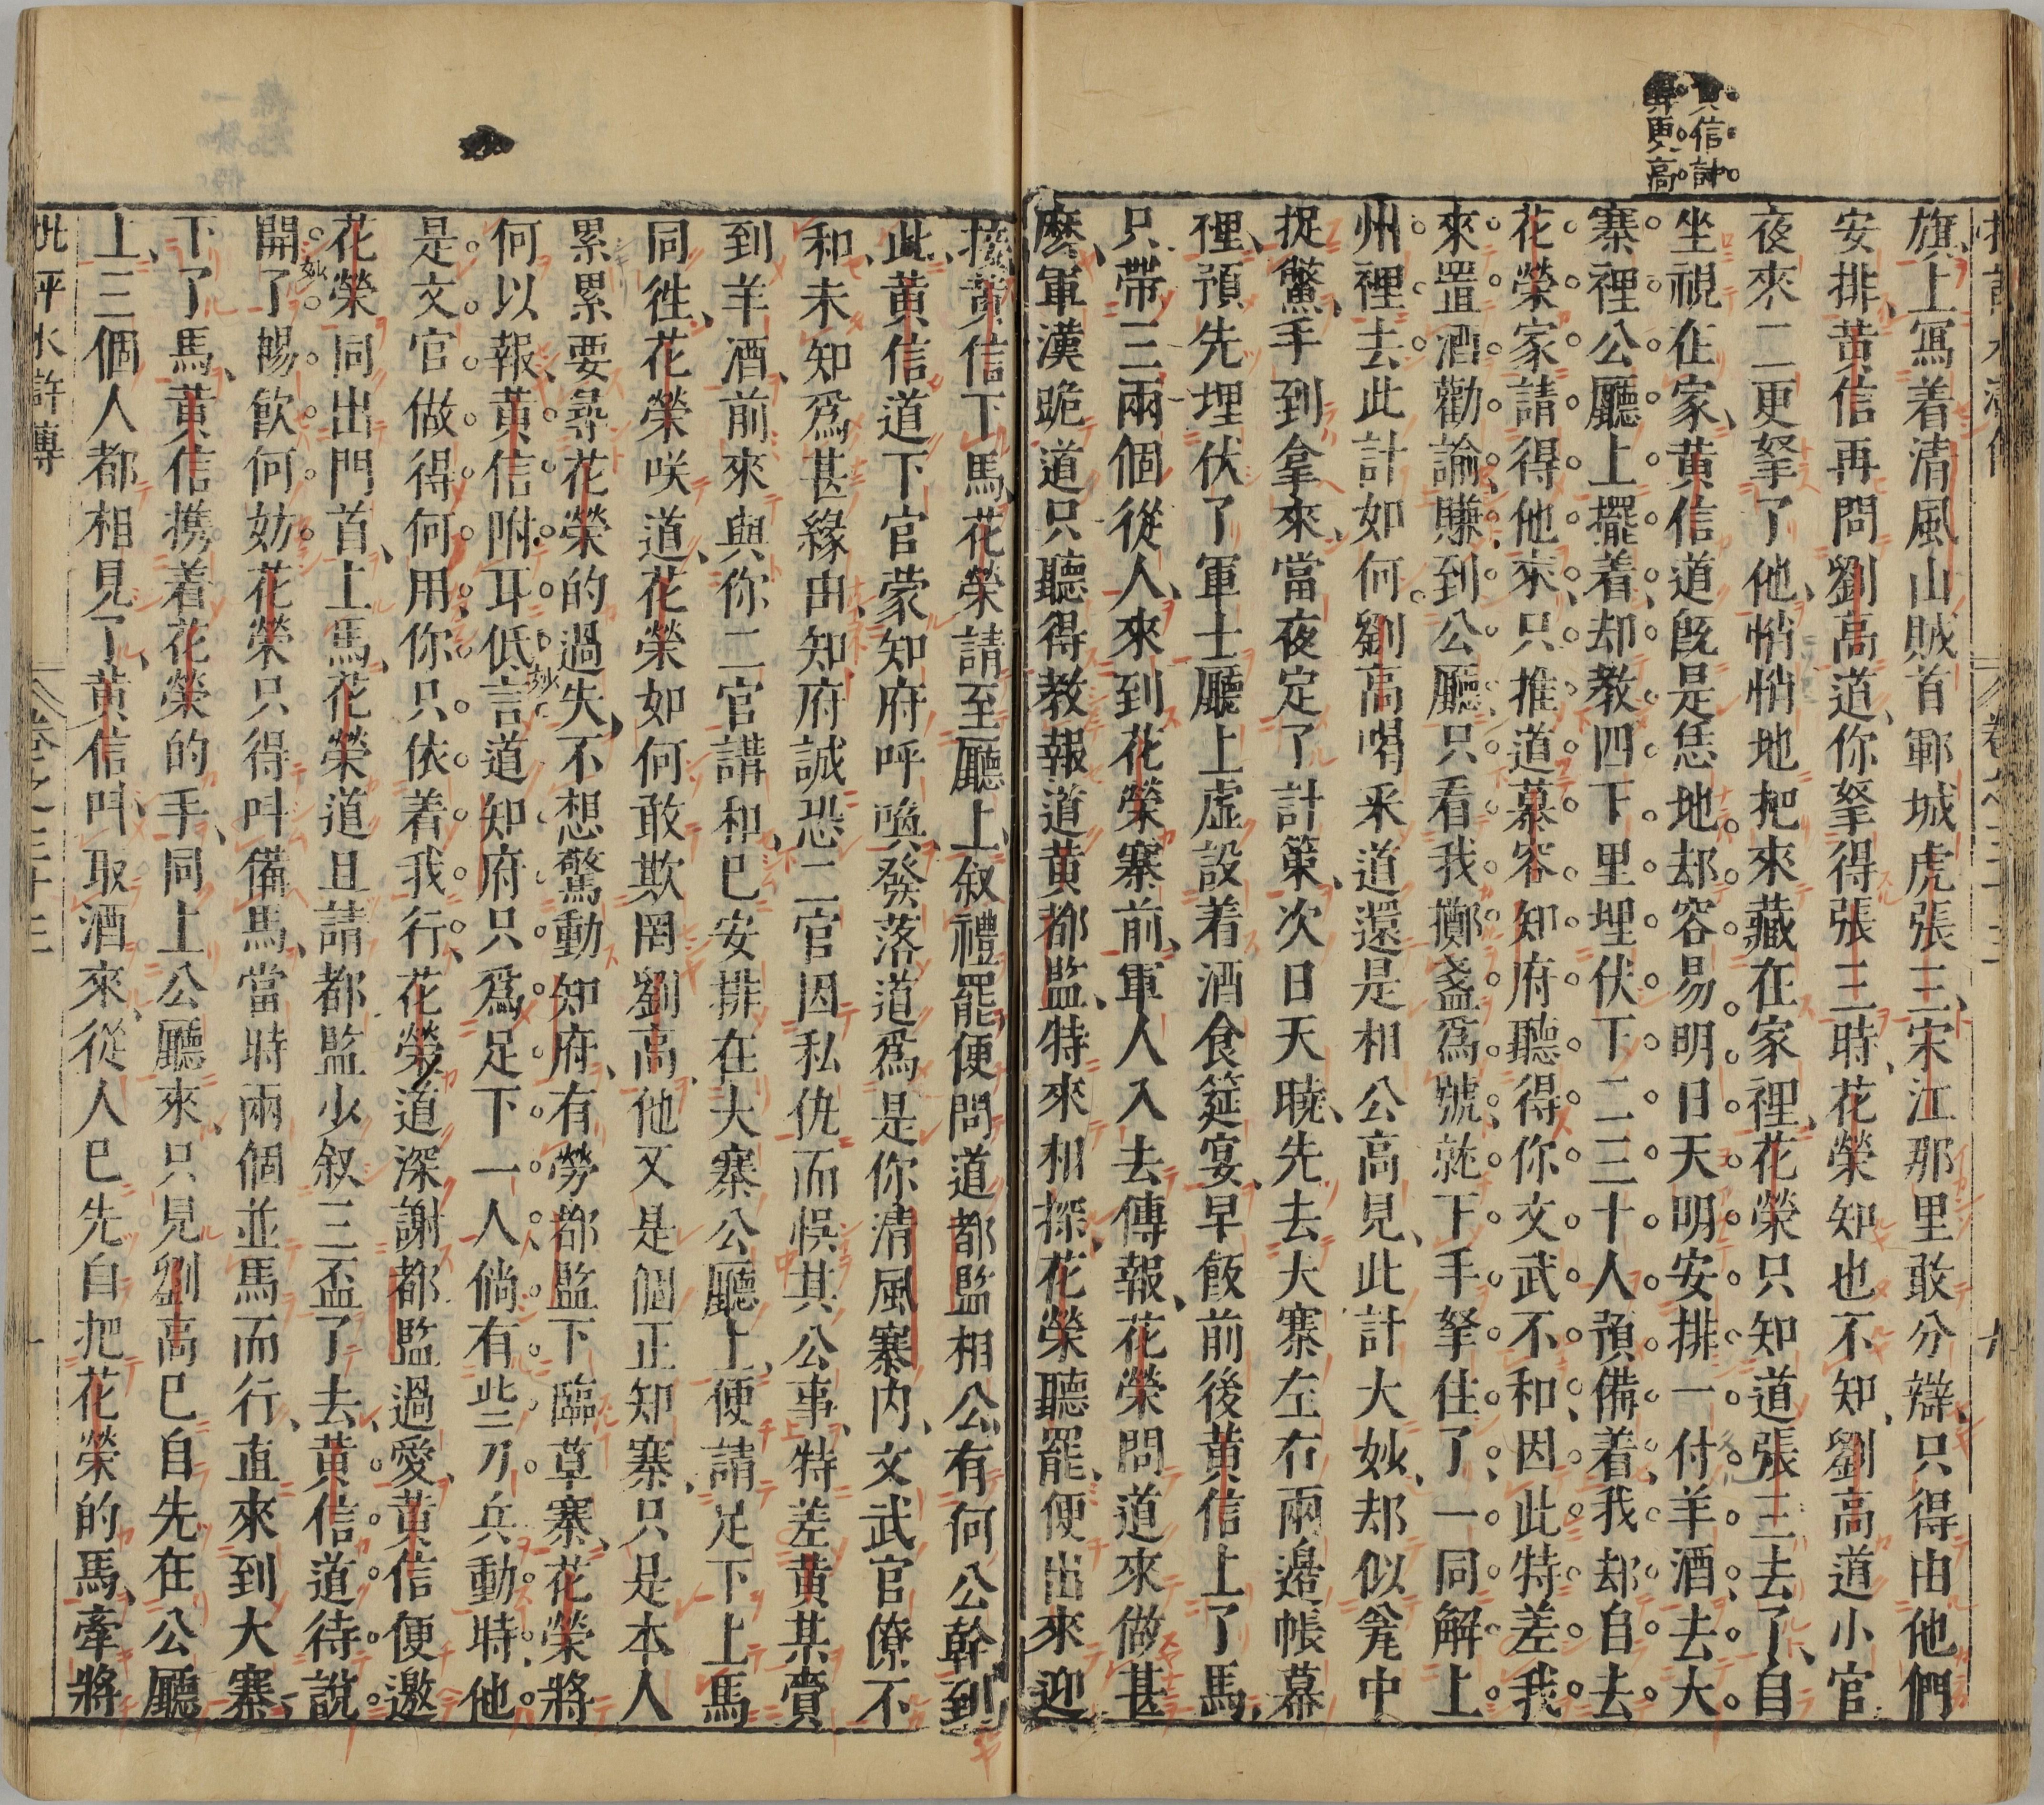 信計
更高
旗上冩着清風山賊首鄆城虎張三宋江那里敢分辯只得由他們
安排黄信再問劉高道你拏得張三時花榮知也不知劉高道小官
夜來二更拏了他悄悄地把來藏在家裡花榮只知道張三去了自
坐視在家黄信道旣是恁地却容易明日天明安排一付羊酒去大
寨裡公廳上擺着却教四下里埋伏下二三十人預備着我却自去
花榮家請得他來只推道慕容知府聽得你文武不和因此特差我
來置酒勸諭賺到公廳只看我擲盞爲號就下手拏住了一同解上
州裡去此計如何劉高喝采道還是相公高見此計大妙却似瓮中
捉鱉手到拿來當夜定了計策次日天曉先去大寨左右兩邊帳幕
裡預先埋伏了軍士廳上虛設着酒食筵宴早飯前後黄信上了馬
只帶三兩個從人來到花榮寨前軍人入去傳報花榮問道來做甚
麽軍漢跪道只聽得教報道黄都監特來相探花榮聽罷便出來迎
接黄信下馬花榮請至廳上叙禮罷便問道都監相公有何公幹到
此黄信道下官蒙知府呼喚發落道爲是你清風寨内文武官僚不
和未知爲甚緣由知府誠恐二官因私仇而悞其公事特差黄某賫
到羊酒前來與你二官講和已安排在大寨公廳上便請足下上馬
同徃花榮咲道花榮如何敢欺罔劉高他又是個正知寨只是本人
累累要尋花榮的過失不想驚動知府有勞都監下臨草寨花榮將
何以報黄信附耳低言道知府只爲足下一人倘有些刀兵動時他
妙
是文官做得何用你只依着我行花榮道深謝都監過愛黄信便邀
花榮同出門首上馬花榮道且請都監少叙三盃了去黄信道待說
妙
開了暢飮何妨花榮只得呌備馬當時兩個並馬而行直來到大寨
下了馬黄信携着花榮的手同上公廳來只見劉高已自先在公廳
上三個人都相見了黄信呌取酒來從人已先自把花榮的馬牽將
批評水滸傳
卷之三十三